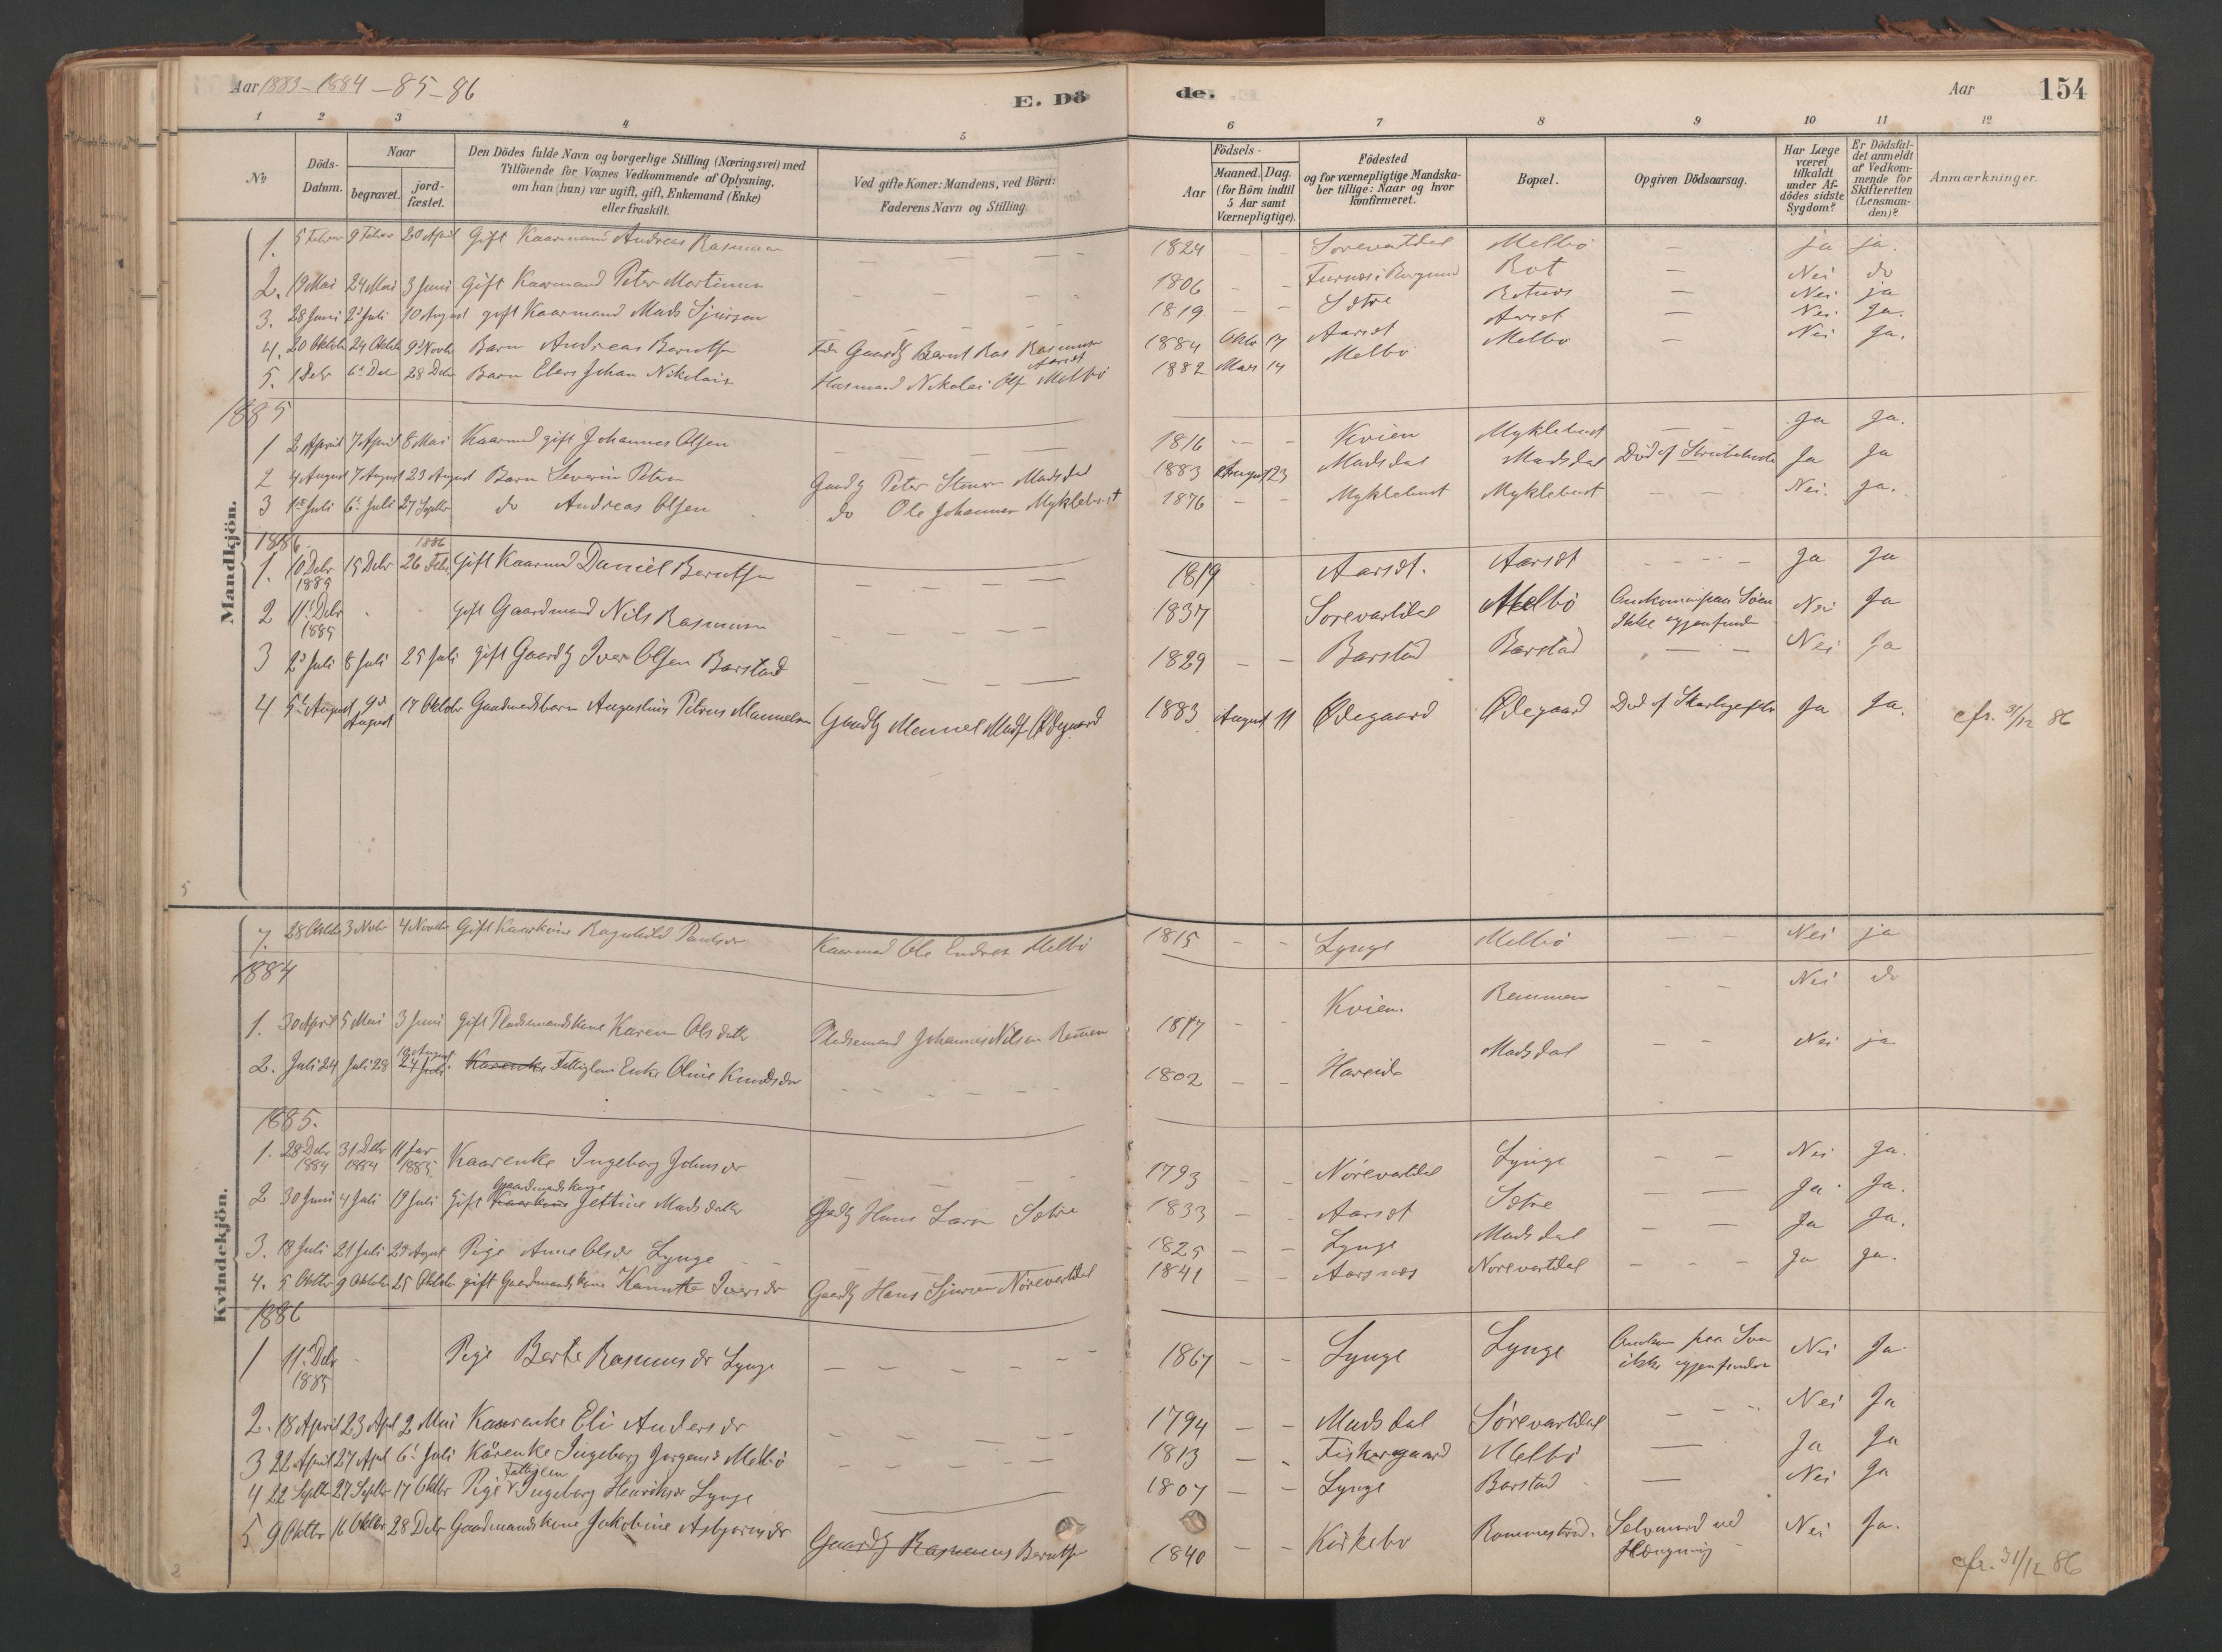 Aar 1883-1884-85-86
E. Döde.
Aar
154
1 2 3 4 5 6 7 8 9 10 11 12
No
Döds-Datum.
Naar
begravet.
jord-fæstet.
Den Dödes fulde Navn og borgerlige Stilling (Næringsvei) med
Tilföiende for Voxnes Vedkommende af Oplysning,
om han (hun) var ugift, gift, Enkemand (Enke)
eller fraskilt.
Ved gifte Koner: Mandens, ved Börn:
Faderens Navn og Stilling
Födsels-
Aar
Maaned. Dag.
(for Börn indtil
5 Aar samt
Værnepligtige).
Födested
og for værnepligtige Mandska-
ber tillige: Naar og hvor
konfirmeret.
Bopæl.
Opgiven Dödsaarsag.
Har Læge
været
tilkaldt
under Af-
dödes sidste
Sygdom?
Er Dödsfal-
det anmeldt
af Vedkom-
mende for
Skifteretten
(Lensman-
den)?
Anmærkninger.
Mandkjön.
1. 5 Febr 9 Febr 20 April Gift Kaarmand Andreas Rasmusen — 1824 — — Sørevartdal Melbö — ja ja.
2. 19 Mai 24 Mai 3 Juni Gift Kaarmand Peter Martinus — 1806 — — Furnæs i Borgund Rot — Nei do
3. 28 Juni 2d Juli 10 August gift Kaarmand Mads Sjursen — 1819 — — Sætre Rotnes — Nei ja
4. 20 Oktbr 24 Oktbr 9d Novbr Barn Andreas Berntsen Gaardbr Bernt Ras Rasmusen Aarset 1884 Oktbr 17 Aarset Aarset — Nei. Ja.
5. 1 Debr 6d Dec 28 Debr Barn Elers Johan Nikolais Husmand Nikolai Ols Melbö 1882 Mars 14 Melbö Melbo — Nei Ja.
1885
1 2 April 7 April 8 Mai Kaarmd gift Johannes Olsen — 1816 — — Kvien Myklebust — Ja Ja.
2 4 August 7 August 23 August Barn Severin Petersen Gaardbr Peter Madsdal 1883 August 23 Madsdal Madsdal Död af Strubehoste Ja Ja
3 1ste Juli 6te Juli 27 Septbr do Andreas Olsen do Ole Johannes Myklebust 1876 — Myklebust Myklebust — — Nei. ja.
1886.
1. 10 Debr 1885 15 Debr 26 Febr 1886 Gift Kaarmd Daniel Berntsen — 1819 Aarset. Aarset — Ja Ja
2 11te Debr 1885 Gift Gaardmand Nils Rasmusen — 1837 Sorevartdal Melbö Omkommen paa Söen Ikke gjenfunden Nei Ja
3 2d Juli 8 Juli 25 Juli gift Gaardbr Iver Olsen Barstad — 1829 — — Barstad Barstad — Nei Ja
4 5te August 9d August 17 Oktober Gaardmandsbarn Augustinus Petrus Manuelsen Gaardbr Manuel Mads Ødegaard 1883 August 11 Ødegaard Ødegaard Död af Skarlagsfeber Ja Ja. cfr. 31/12 86
5
Kvindekjön.
7. 28 Oktbr 3 Nvbr 4 Novbr Gift Kaarkone Ragnhild Paulsdr Kaarmand Ole Endresen Melbö 1815 — — Lynge Melbö — — Nei ja
1884
1. 30 April 5 Mai 3 Juni gift Pladsemandskone Karen Olsdatter Pladsemand Johannes Nilsen Remmen 1817 — — Kvien. Remmen — — Nei do
2. Juli 24 Juli 28 24 Juli 10 August Kaarenke Fattiglem Enke Oline Knudsdtr — 1802 — — Hareide Madsdal — — Nei ja
1885.
1. 28 Debr 1884 31 Debr 1884 11 Jar 1885 Kaarenke Ingeborg Johnsdr — 1793 — — Nörevartdal Lynge — — Nei Ja.
2 30 Juni 4 Juli 19 Juli Gift Kaarkone Gaardmandskone Jettine Madsdatter Gaardbr Hans Larsen Sætre 1833 — — Aarset Sætre — — Ja. Ja.
3. 18 Juli 21 Juli 29 August Pige Anne Olsdr Lynge — — 1825 — — Lynge Madsdal — — Ja Ja.
4. 5 Oktbr 9 Oktobr 25 Oktobr gift Gaardmandskone Kanutte Iversdr Gaardbr Hans Sjursen Nörevartdal 1841 — — Aarsnes Norevartdal — — — Ja Ja.
1886
1 11te Debr 1885 Pige Berte Rasmusdr Lynge — 1867 — — Lynge Lynge Omkom paa Söen ikke gjenfunden Nei Ja
2. 18 April 23 Apl 2 Mai Kaarenke Eli Andersdr — 1794 — — Madsdal Sörevartdal — — Nei Ja
3 22 April 27 Apl 6te Juli Kårenke Ingeborg Jørgensd Melbö — 1813 — — Fiskergaard Melbö — Ja Ja
4 22 Septbr 27 Septbr 17 Oktbr Pige Fattiglem Ingeborg Henriksdr Lynge — 1807 — — Lynge Barstad — Nei Ja
5 9 Oktbr 16 Oktbr 28 Debr Gaardmandskone Jakobine Asbjørnsdr Gaardbr Rasmus Berntsen 1840 — — Kirkebö Rammestrand. Selvmord ved Hængning Nei Ja. cfr. 31/12 86
2